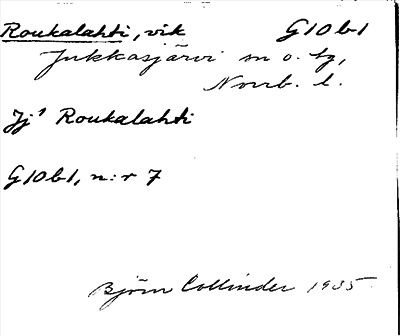 Roukalahti, vik G10b1
Jukkasjärvi sn o. tg,
Norrb. l.
Jj¹ Roukalahti
G10b1, n:r 7
Björn Collinder 1935